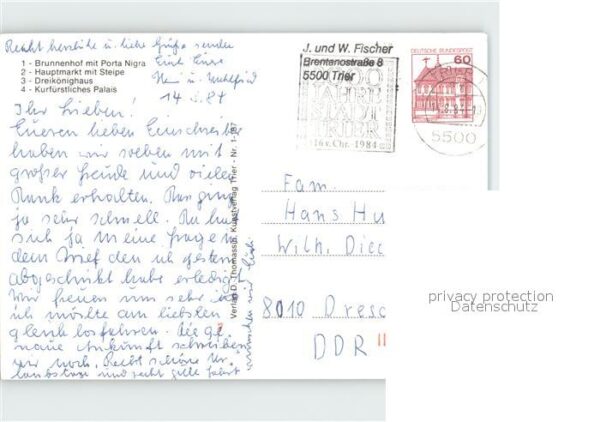 Recht herzliche u. liebe Grüße senden
1 - Brunnenhof mit Porta Nigra
2 - Hauptmarkt mit Steipe
3 - Dreikönighaus
4 - Kurfürstliches Palais
Euch Eure
14.8.84
Ihr Lieben!
Eueren lieben Einschreiber
haben wir soeben mit
großer Freude und vielen
Dank erhalten. Das ging
ja sehr schnell. Da hat
sich ja meine Frage in
dem Brief den ich gestern
abgeschickt habe erledigt.
Wir freuen uns sehr
ich möchte am liebsten
gleich losfahren. Die ge-
naue Ankunft schreiben
wir noch. Recht schöne Ur-
laubstage und recht gute Fahrt
wünschen wir Euch
Verlag D. Thomassin, Kunstverlag Trier - Nr. 1-
J. und W. Fischer
Brentanostraße 8
5500 Trier
2000
JAHRE
STADT
TRIER
16 v. Chr. - 1984
DEUTSCHE BUNDESPOST
60
5500
Fam.
Hans Hu
Wilh. Diec
8010 Dresd
DDR
privacy protection
Datenschutz